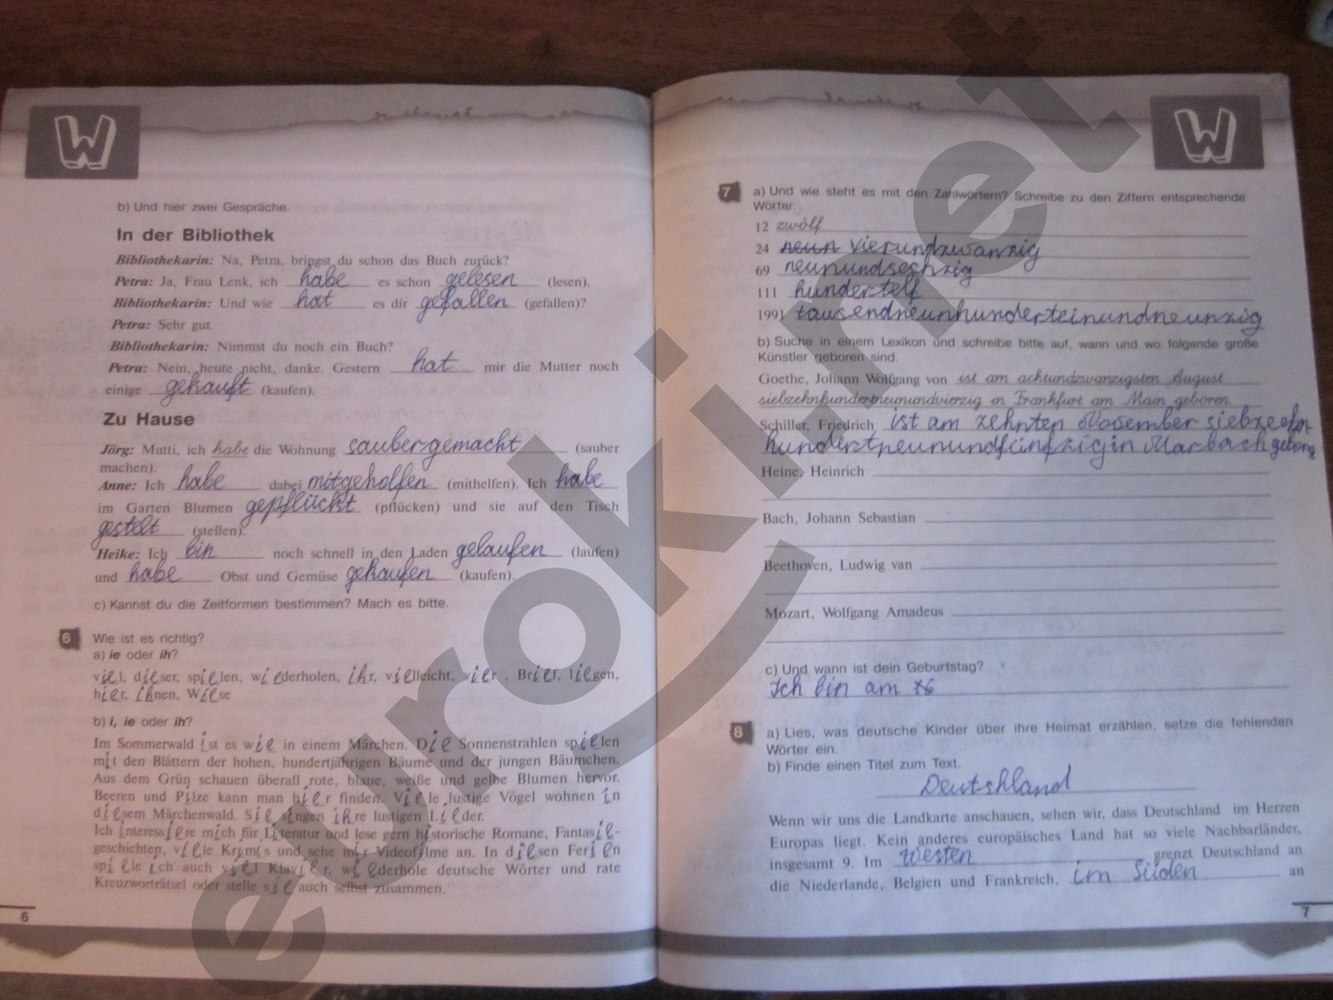 W
b) Und hier zwei Gespräche.
In der Bibliothek
Bibliothekarin: Na, Petra, bringst du schon das Buch zurück?
Petra: Ja, Frau Lenk, ich habe es schon gelesen (lesen).
Bibliothekarin: Und wie hat es dir gefallen (gefallen)?
Petra: Sehr gut.
Bibliothekarin: Nimmst du noch ein Buch?
Petra: Nein, heute nicht, danke. Gestern hat mir die Mutter noch
einige gekauft (kaufen).
Zu Hause
Jörg: Mutti, ich habe die Wohnung saubergemacht (sauber
machen).
Anne: Ich habe dabei mitgeholfen (mithelfen). Ich habe
im Garten Blumen gepflückt (pflücken) und sie auf den Tisch
gestelt (stellen).
Heike: Ich bin noch schnell in den Laden gelaufen (laufen)
und habe Obst und Gemüse gekaufen (kaufen).
c) Kannst du die Zeitformen bestimmen? Mach es bitte.
6 Wie ist es richtig?
a) ie oder ih?
viel, dieser, spielen, wiederholen, ihr, vielleicht, vier, Brief, liegen,
hier, ihnen, Wiese
b) i, ie oder ih?
Im Sommerwald ist es wie in einem Märchen. Die Sonnenstrahlen spielen
mit den Blättern der hohen, hundertjährigen Bäume und der jungen Bäumchen.
Aus dem Grün schauen überall rote, blaue, weiße und gelbe Blumen hervor.
Beeren und Pilze kann man hier finden. Viele lustige Vögel wohnen in
diesem Märchenwald. Sie singen ihre lustigen Lieder.
Ich interessiere mich für Literatur und lese gern historische Romane, Fantasie-
geschichten, viele Krimis und sehe mir Videofilme an. In diesen Ferien
spiele ich auch viel Klavier, wiederhole deutsche Wörter und rate
Kreuzworträtsel oder stelle sie auch selbst zusammen.
6
W
7 a) Und wie steht es mit den Zahlwörtern? Schreibe zu den Ziffern entsprechende
Wörter.
12 zwölf
24 neun vierundzwanzig
69 neunundsechzig
111 hundertelf
1991 tausendneunhunderteinundneunzig
b) Suche in einem Lexikon und schreibe bitte auf, wann und wo folgende große
Künstler geboren sind.
Goethe, Johann Wolfgang von ist am achtundzwanzigsten August
siebzehnhundertneunundvierzig in Frankfurt am Main geboren
Schiller, Friedrich ist am zehnten November siebzeehn-
hundertneunundfünfzig in Marbach geboren
Heine, Heinrich
Bach, Johann Sebastian
Beethoven, Ludwig van
Mozart, Wolfgang Amadeus
c) Und wann ist dein Geburtstag?
Ich bin am
8 a) Lies, was deutsche Kinder über ihre Heimat erzählen, setze die fehlenden
Wörter ein.
b) Finde einen Titel zum Text.
Deutshland
Wenn wir uns die Landkarte anschauen, sehen wir, dass Deutschland im Herzen
Europas liegt. Kein anderes europäisches Land hat so viele Nachbarländer,
insgesamt 9. Im Westen grenzt Deutschland an
die Niederlande, Belgien und Frankreich, im Süden an
7
euroki.net